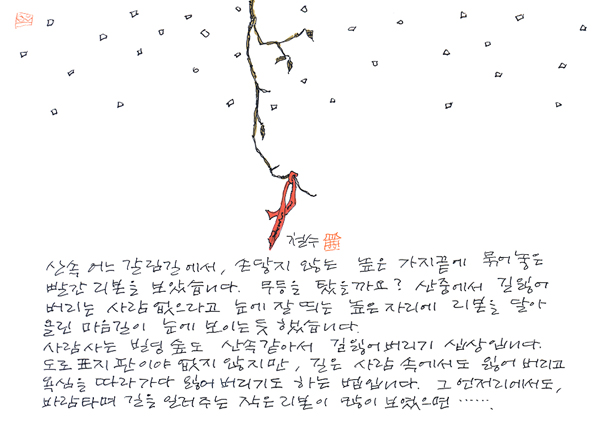 철수
산속 어느 갈림길에서, 손닿지 않는 높은 가지끝에 묶어놓은
빨간 리본을 보았습니다. 무등을 탔을까요? 산중에서 길잃어
버리는 사람 없으라고 눈에 잘 띄는 높은 자리에 리본을 달아
올린 마음길이 눈에 보이는듯 했습니다.
사람사는 빌딩숲도 산속같아서 길잃어버리기 십상입니다.
도로표지판이야 없지 않지만, 길은 사람 속에서도 잃어버리고
욕심을 따라가다 잃어버리기도 하는 법입니다. 그 언저리에서도,
바람타며 길을 일러주는 작은 리본이 많이 보였으면 ······.